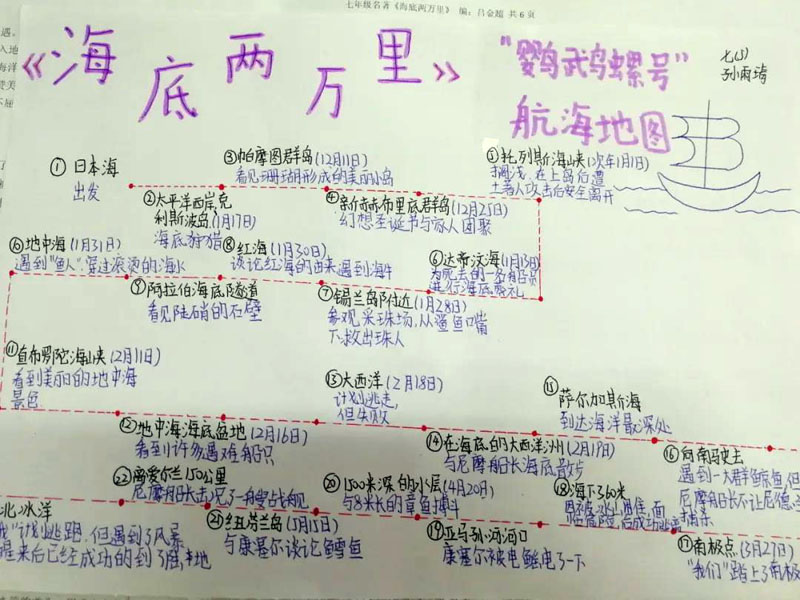 七年级名著《海底两万里》 编：吕金超 共6页
《海底两万里》
"鹦鹉螺号"
航海地图
七(5)
①日本海
出发
②太平洋西岸克
利斯波岛(11月17日)
海底狩猎
③帕摩图群岛(12月11日)
看见珊瑚形成的美丽小岛
④新赫布里底群岛(12月25日)
幻想圣诞节与家人团聚
⑤托列斯海峡(次年1月1日)
搁浅，在上岛后遭
土著人攻击后安全离开
⑥达蒂汶海(1月13日)
为死去的一名船员
进行海底葬礼
⑦锡兰岛附近(1月28日)
参观采珠场，从鲨鱼口嘴
下救出珠人
⑧红海(1月30日)
谈论红海的由来遇到海牛
⑨阿拉伯海底隧道
看见陡硝的石壁
⑩地中海(1月31日)
遇到"鱼人"穿过滚烫的海水
⑪直布罗陀海峡(2月11日)
看到美丽的地中海
景色
⑫地中海海底盆地(2月16日)
看到许多遇难船只
⑬大西洋(2月18日)
计划逃走，
但失败
⑭在海底的大西洋洲(2月19日)
与尼摩船长海底散步
⑮萨尔加斯海
到达海洋最深处
⑯向南马史去
遇到一大群鲸鱼，但
尼摩船长不让尼德
⑰南极点(3月27日)
"我们"踏上了南极
⑱海下360米
⑲亚马孙河河口
康塞尔被电鳐电了一下
⑳1500米深的水层(4月20日)
与8米长的章鱼搏斗
㉑红岛(5月15日)
与康塞尔谈论鳕鱼
㉒离爱尔兰150公里
尼摩船长击沉了一艘战舰
北冰洋
我"计划逃跑，但遇到了风暴
醒来后已经成功的到了陆地